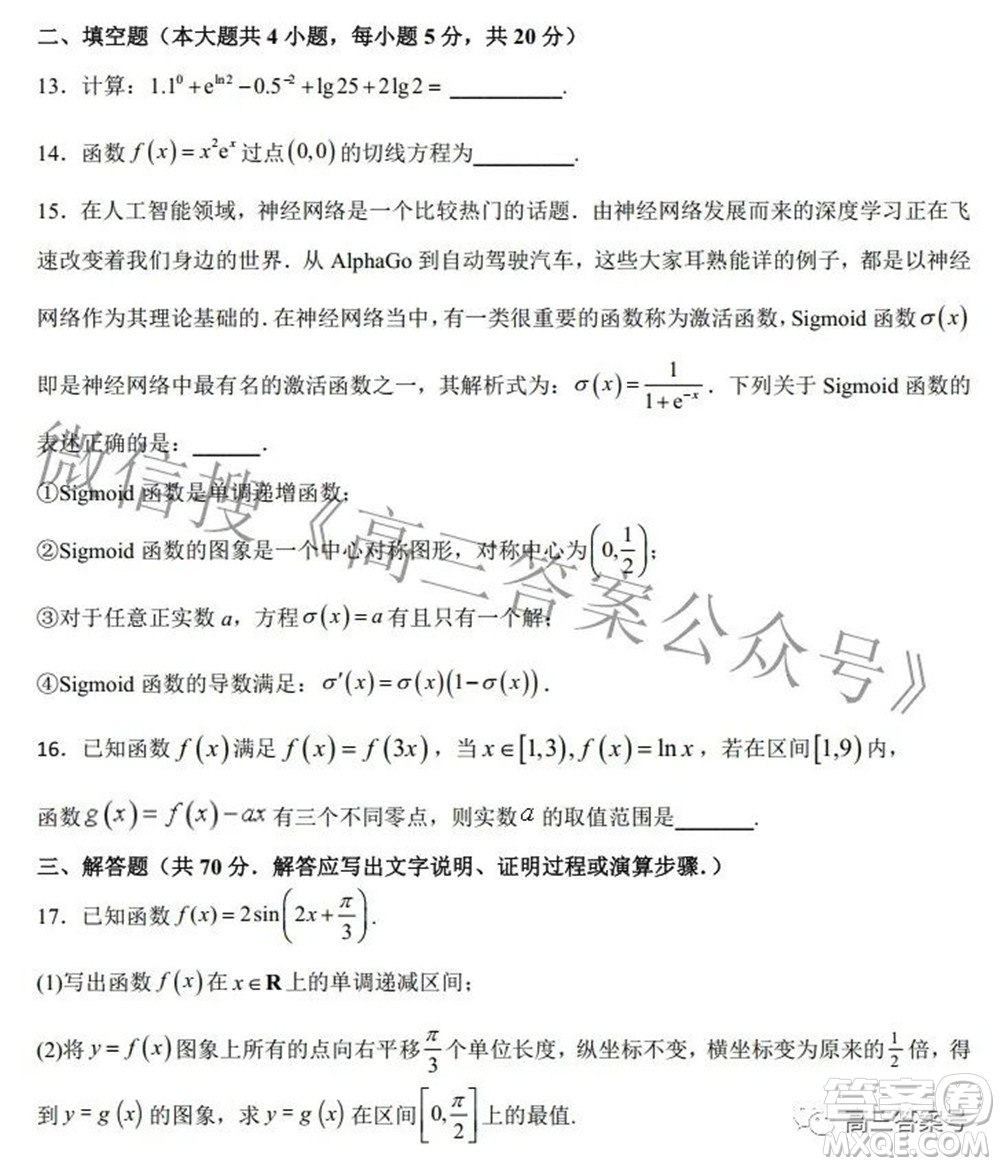 二、填空题（本大题共 4 小题，每小题 5 分，共 20 分）
13．计算：1.1⁰ + e^{ln2} − 0.5⁻² + lg25 + 2lg2 = ________.
14．函数 f(x) = x²eˣ 过点(0,0)的切线方程为________.
15．在人工智能领域，神经网络是一个比较热门的话题．由神经网络发展而来的深度学习正在飞
速改变着我们身边的世界．从 AlphaGo 到自动驾驶汽车，这些大家耳熟能详的例子，都是以神经
网络作为其理论基础的．在神经网络当中，有一类很重要的函数称为激活函数，Sigmoid 函数σ(x)
即是神经网络中最有名的激活函数之一，其解析式为：σ(x) = 1/(1+e⁻ˣ)．下列关于 Sigmoid 函数的
表述正确的是：______．
①Sigmoid 函数是单调递增函数；
②Sigmoid 函数的图象是一个中心对称图形，对称中心为(0, 1/2)；
③对于任意正实数 a，方程σ(x) = a 有且只有一个解；
④Sigmoid 函数的导数满足：σ′(x) = σ(x)(1−σ(x))．
16．已知函数 f(x)满足 f(x) = f(3x)，当 x∈[1,3), f(x) = ln x，若在区间[1,9)内，
函数g(x) = f(x) − ax 有三个不同零点，则实数a 的取值范围是_______.
三、解答题（共 70 分．解答应写出文字说明、证明过程或演算步骤．）
17．已知函数 f(x) = 2sin(2x + π/3).
(1)写出函数 f(x)在 x∈R 上的单调递减区间；
(2)将 y = f(x)图象上所有的点向右平移 π/3 个单位长度，纵坐标不变，横坐标变为原来的 1/2 倍，得
到 y = g(x) 的图象，求 y = g(x) 在区间[0, π/2]上的最值.
微信搜《高三答案公众号》
高三答案号
答案圈
MXQE.COM